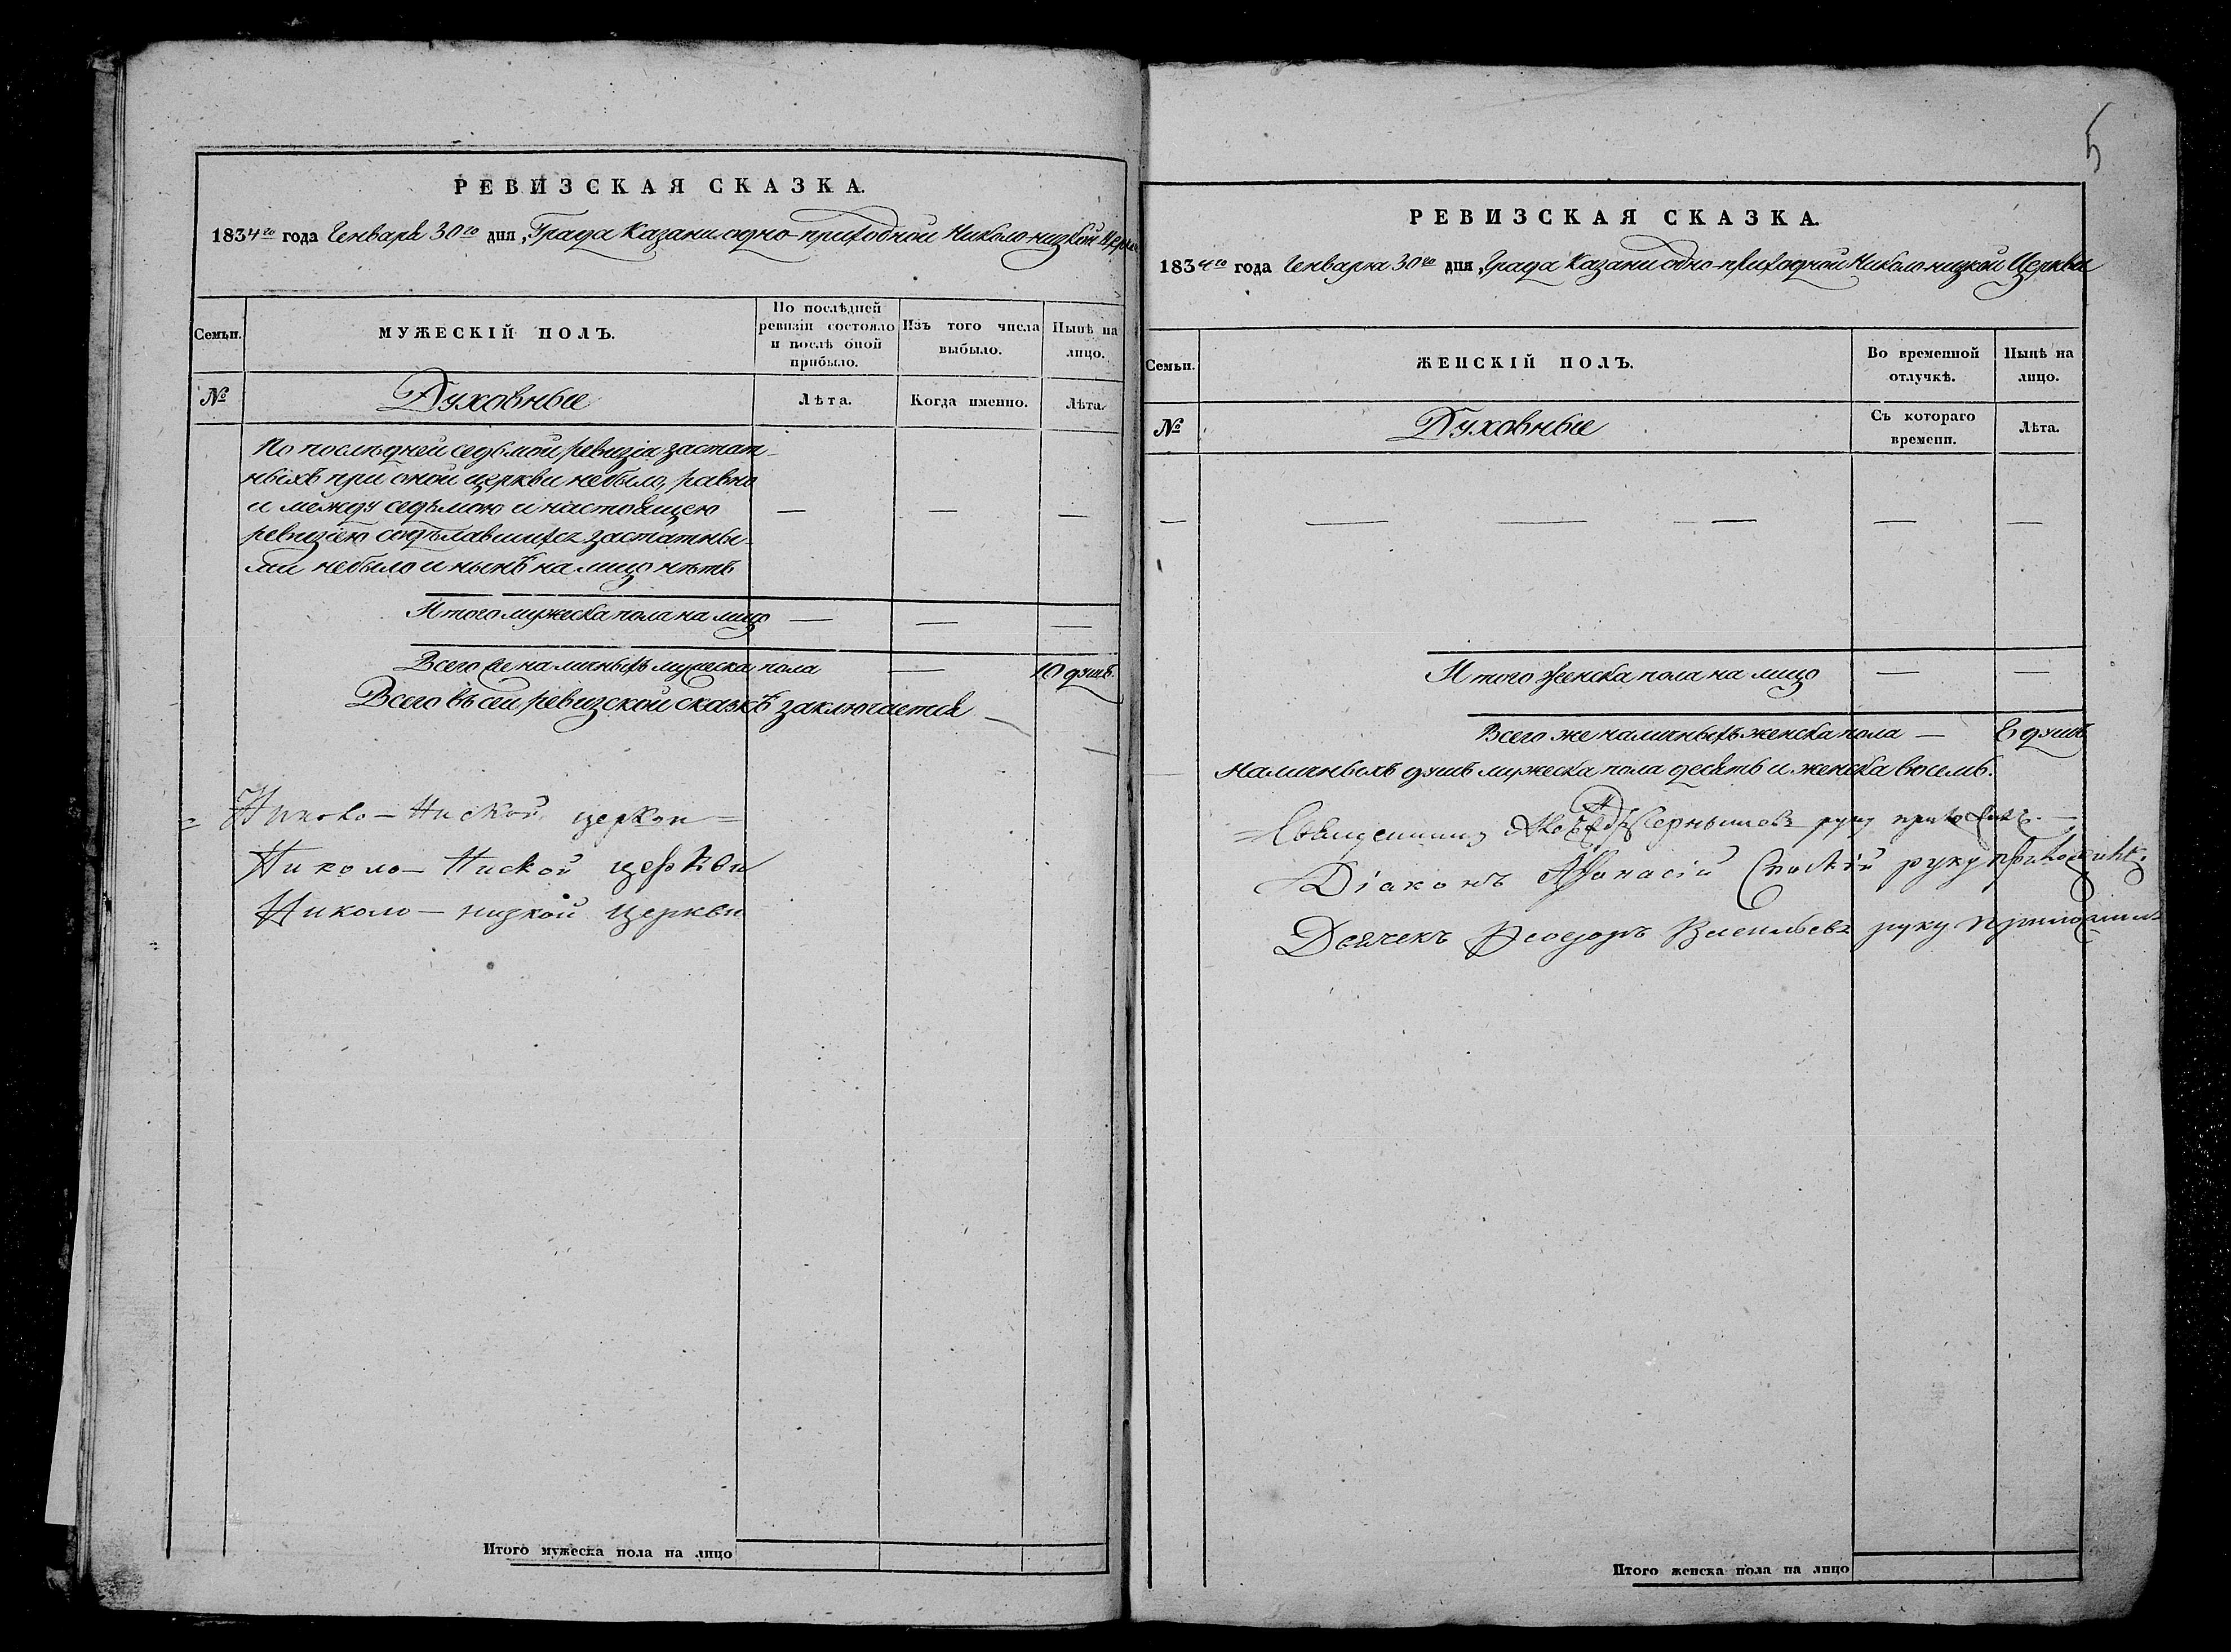 РЕВИЗСКАЯ СКАЗКА.
1834го года Генваря 30го дня, Града Казани одно-приходной Николо-низкой Церкви
Семьи.
МУЖЕСКІЙ ПОЛЪ.
По послѣдней ревизіи состояло и послѣ оной прибыло.
Изъ того числа выбыло.
Нынѣ на лицо.
№
Духовные
Лѣта.
Когда именно.
Лѣта.
По последней седьмой ревизіи застат-
ныхъ при оной церкви небыло, равно
и между седьмою и настоящею — — —
ревизіею содѣлавшихся застатны-
ми небыло и нынѣ на лицо нѣтъ
Итого мужеска пола на лицо — — —
Всего же наличныхъ мужеска пола — 10 душъ.
Всего въ сей ревизской сказкѣ заключается —
= Николо-Ниской церкви =
Николо-Ниской церкви
Николо-низкой Церкви
Итого мужеска пола на лицо
5
РЕВИЗСКАЯ СКАЗКА.
1834го года Генваря 30го дня, Града Казани одно-приходной Николо-низкой Церкви
Семьи.
ЖЕНСКІЙ ПОЛЪ.
Во временной отлучкѣ.
Нынѣ на лицо.
№
Духовные
Съ котораго времени.
Лѣта.
— — — — — —
Итого женска пола на лицо — —
Всего же наличныхъ женска пола — 8 душъ
Наличныхъ душъ мужеска пола десять и женска восемь.
=Священникъ Чернышевъ руку приложилъ. —
Діаконъ Афанасій Спаскій руку приложилъ.
Дьячекъ Ѳеодоръ Васильевъ руку приложилъ
Итого женска пола на лицо